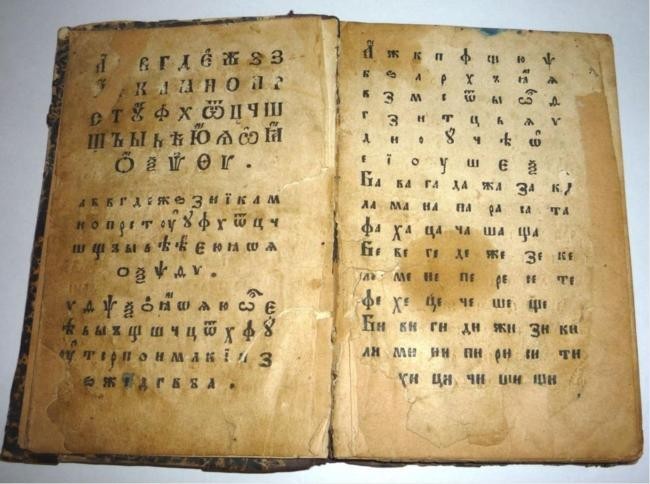 А҆ В Г Д Є Ж Ѕ З
К Л М Н О П Р
С Т Ꙋ Ф Х Ѿ Ц Ч Ш
Щ Ъ Ы Ь Ѣ Ю Ѧ Ѡ Ꙗ
Ѻ Ѯ Ѱ Ѳ Ѵ .
а б в г д е ж ѕ з и ї к л м
н о п р с т оу ꙋ ф х ѿ ц ч
ш щ ъ ы ь ѣ є ю ꙗ ѡ ѧ
ѻ ѯ ѱ ѳ ѵ .
ѵ ѳ ѱ ѯ ѻ ꙗ ѡ ѧ ю ѽ є
ѣ ь ы ъ щ ш ч ц ѿ х ф ꙋ
оу т с р п о н м л к ї и з
ѕ ж е д г в б а .
А҆ ж к п ф щ ю ѱ
б ѕ л р х ъ ꙗ
в з м с ѿ ы ѽ ѳ
г з н т ц ь ѧ ѵ
д и о ꙋ ч ѣ ѡ
е ї о у ш є ѯ
Ба ва га да жа за ка
ла ма на па ра са та
фа ха ца ча ша ща
Бе ве ге де же зе ке
ле ме не пе ре се те
фе хе це че ше ще
Би ви ги ди жи зи ки
ли ми ни пи ри си ти
хи ци чи ши щи